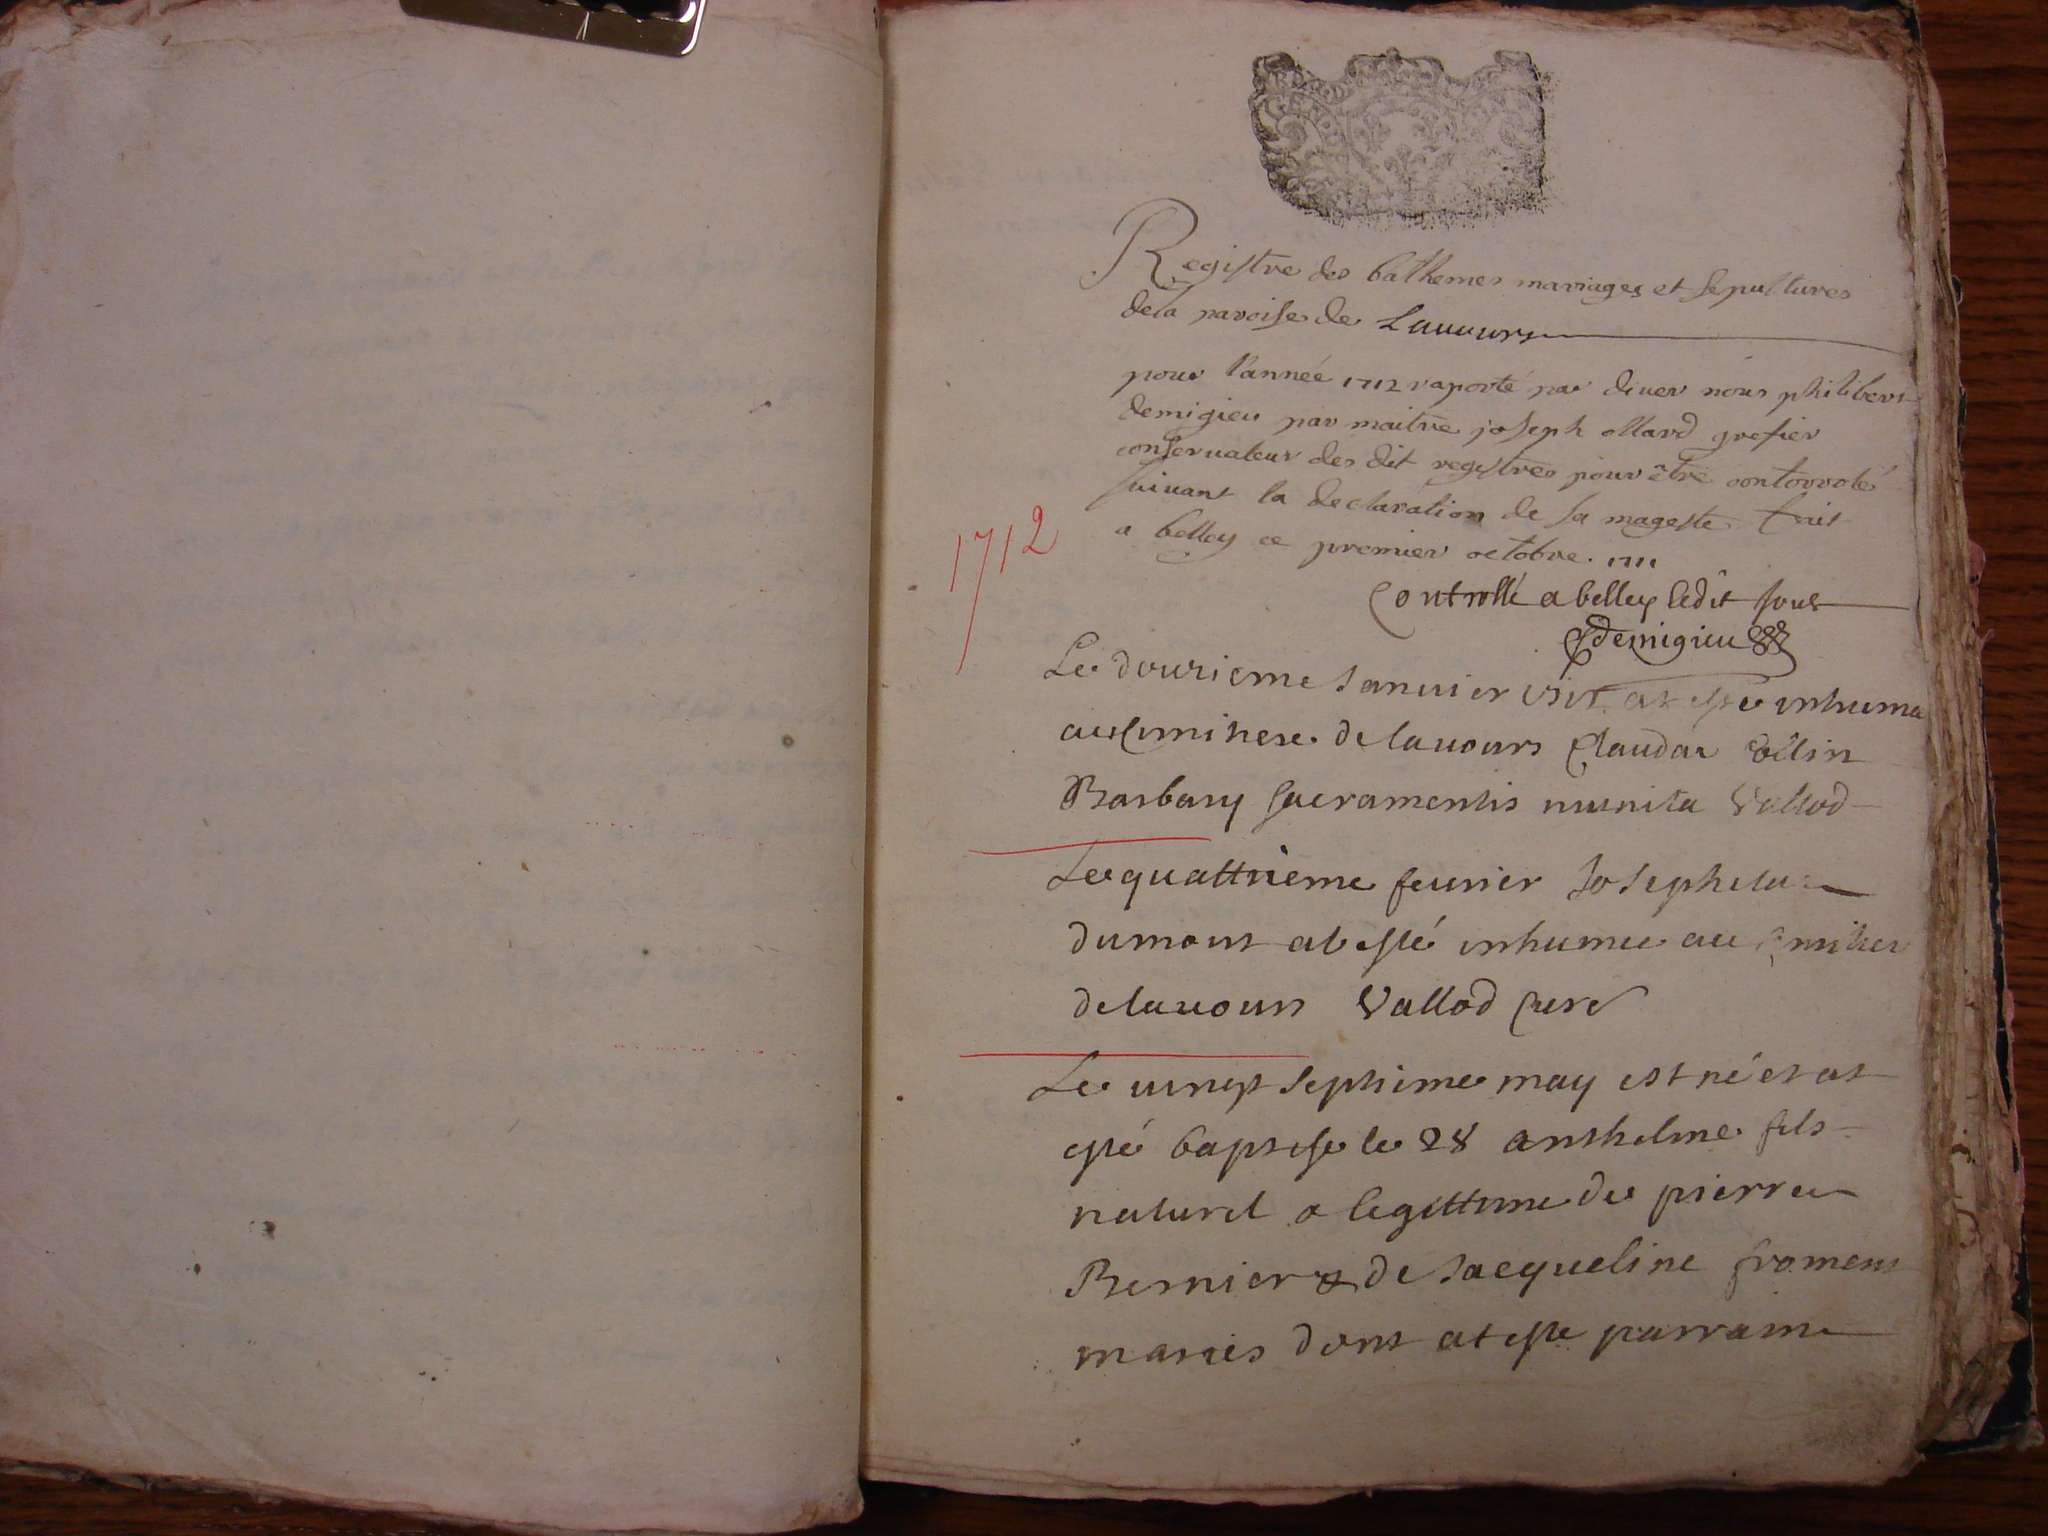 Registre des bathemes mariages et sepultures
dela paroisse de Lauours
pour l'année 1712 raporté par deuer nous philibert
demigieu par maitre joseph ollard grefier
conservateur des dit registres pour être contorrolé
suivant la declaration de sa mageste fait
a belley ce premier octobre. 1711
Controllé a belley ledit jour
Demigieu
1712
Le douzieme Januier at esté inhumé
au simitiere de lauours Clauda Collin
Barbary sacramentis munita Vallod
Le quattrieme feurier Josephe
dumont at esté inhumee au
de lauours Vallod Curé
Le vingt septieme may est né et at
esté baptise le 28 anthelme fils
naturel & legittime de pierre
Bernier & de Jacqueline froment
mariés dont at esté parrain